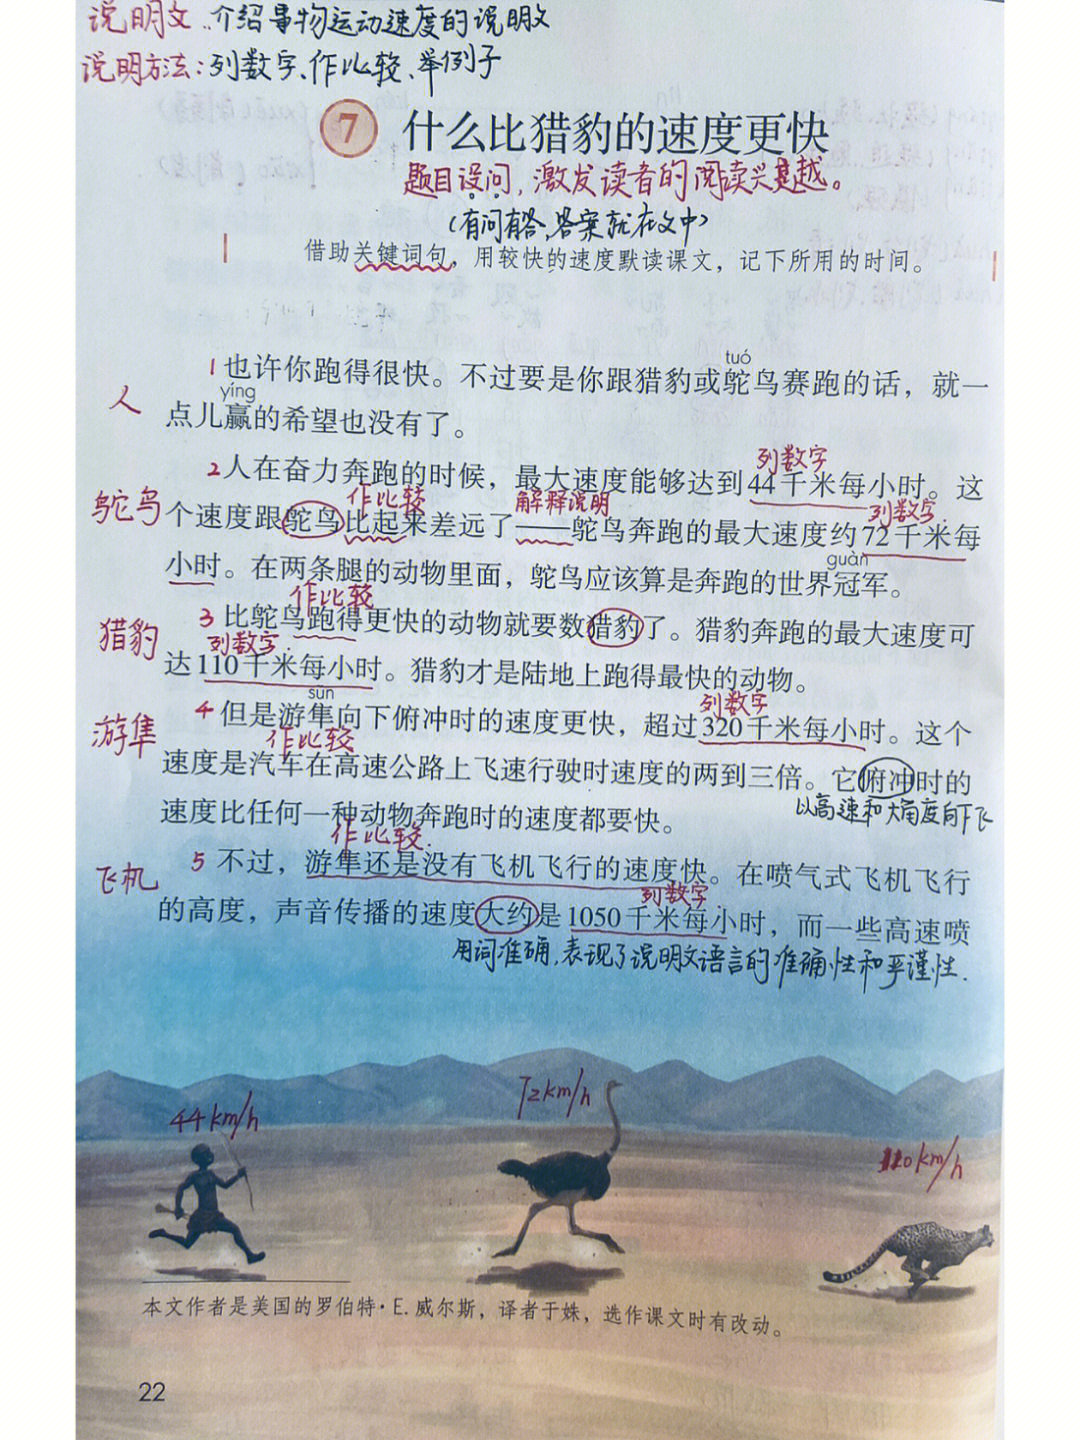 说明文:介绍事物运动速度的说明文
说明方法:列数字、作比较、举例子
7 什么比猎豹的速度更快
题目设问,激发读者的阅读兴趣。
(有问有答,答案就在文中)
借助关键词句,用较快的速度默读课文,记下所用的时间。
tuó
1 也许你跑得很快。不过要是你跟猎豹或鸵鸟赛跑的话,就一
人
yíng
点儿赢的希望也没有了。
列数字
2 人在奋力奔跑的时候,最大速度能够达到44千米每小时。这
鸵鸟
作比较 解释说明 列数字
个速度跟鸵鸟比起来差远了——鸵鸟奔跑的最大速度约72千米每
guàn
小时。在两条腿的动物里面,鸵鸟应该算是奔跑的世界冠军。
作比较
猎豹
3 比鸵鸟跑得更快的动物就要数猎豹了。猎豹奔跑的最大速度可
列数字
达110千米每小时。猎豹才是陆地上跑得最快的动物。
sǔn 列数字
游隼
4 但是游隼向下俯冲时的速度更快,超过320千米每小时。这个
作比较
速度是汽车在高速公路上飞速行驶时速度的两到三倍。它俯冲时的
以高速和大角度向下飞
速度比任何一种动物奔跑时的速度都要快。
作比较
飞机
5 不过,游隼还是没有飞机飞行的速度快。在喷气式飞机飞行
列数字
的高度,声音传播的速度大约是1050千米每小时,而一些高速喷
用词准确,表现了说明文语言的准确性和严谨性.
44km/h
72km/h
110km/h
本文作者是美国的罗伯特·E.威尔斯,译者于姝,选作课文时有改动。
22